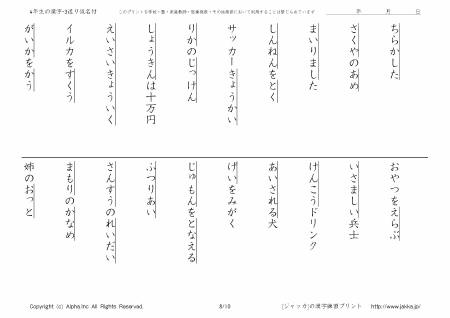 4年生の漢字-3送り仮名付
このプリントを学校・塾・家庭教師・医療機関・その他施設において利用することは禁じられています
年　月　日
ちらかした
さくやのあめ
まいりました
しんねんをとく
サッカーきょうかい
りかのじっけん
しょうきんは十万円
えいさいきょういく
イルカをすくう
がいかをかう
おやつをえらぶ
いさましい兵士
けんこうドリンク
あいされる犬
げいをみがく
じゅもんをとなえる
ふつりあい
さんすうのれいだい
まもりのかなめ
姉のおっと
Copyright (c) Alpha.Inc All Rights Reserved.
8/10
[ジャッカ]の漢字練習プリント　http://www.jakka.jp/